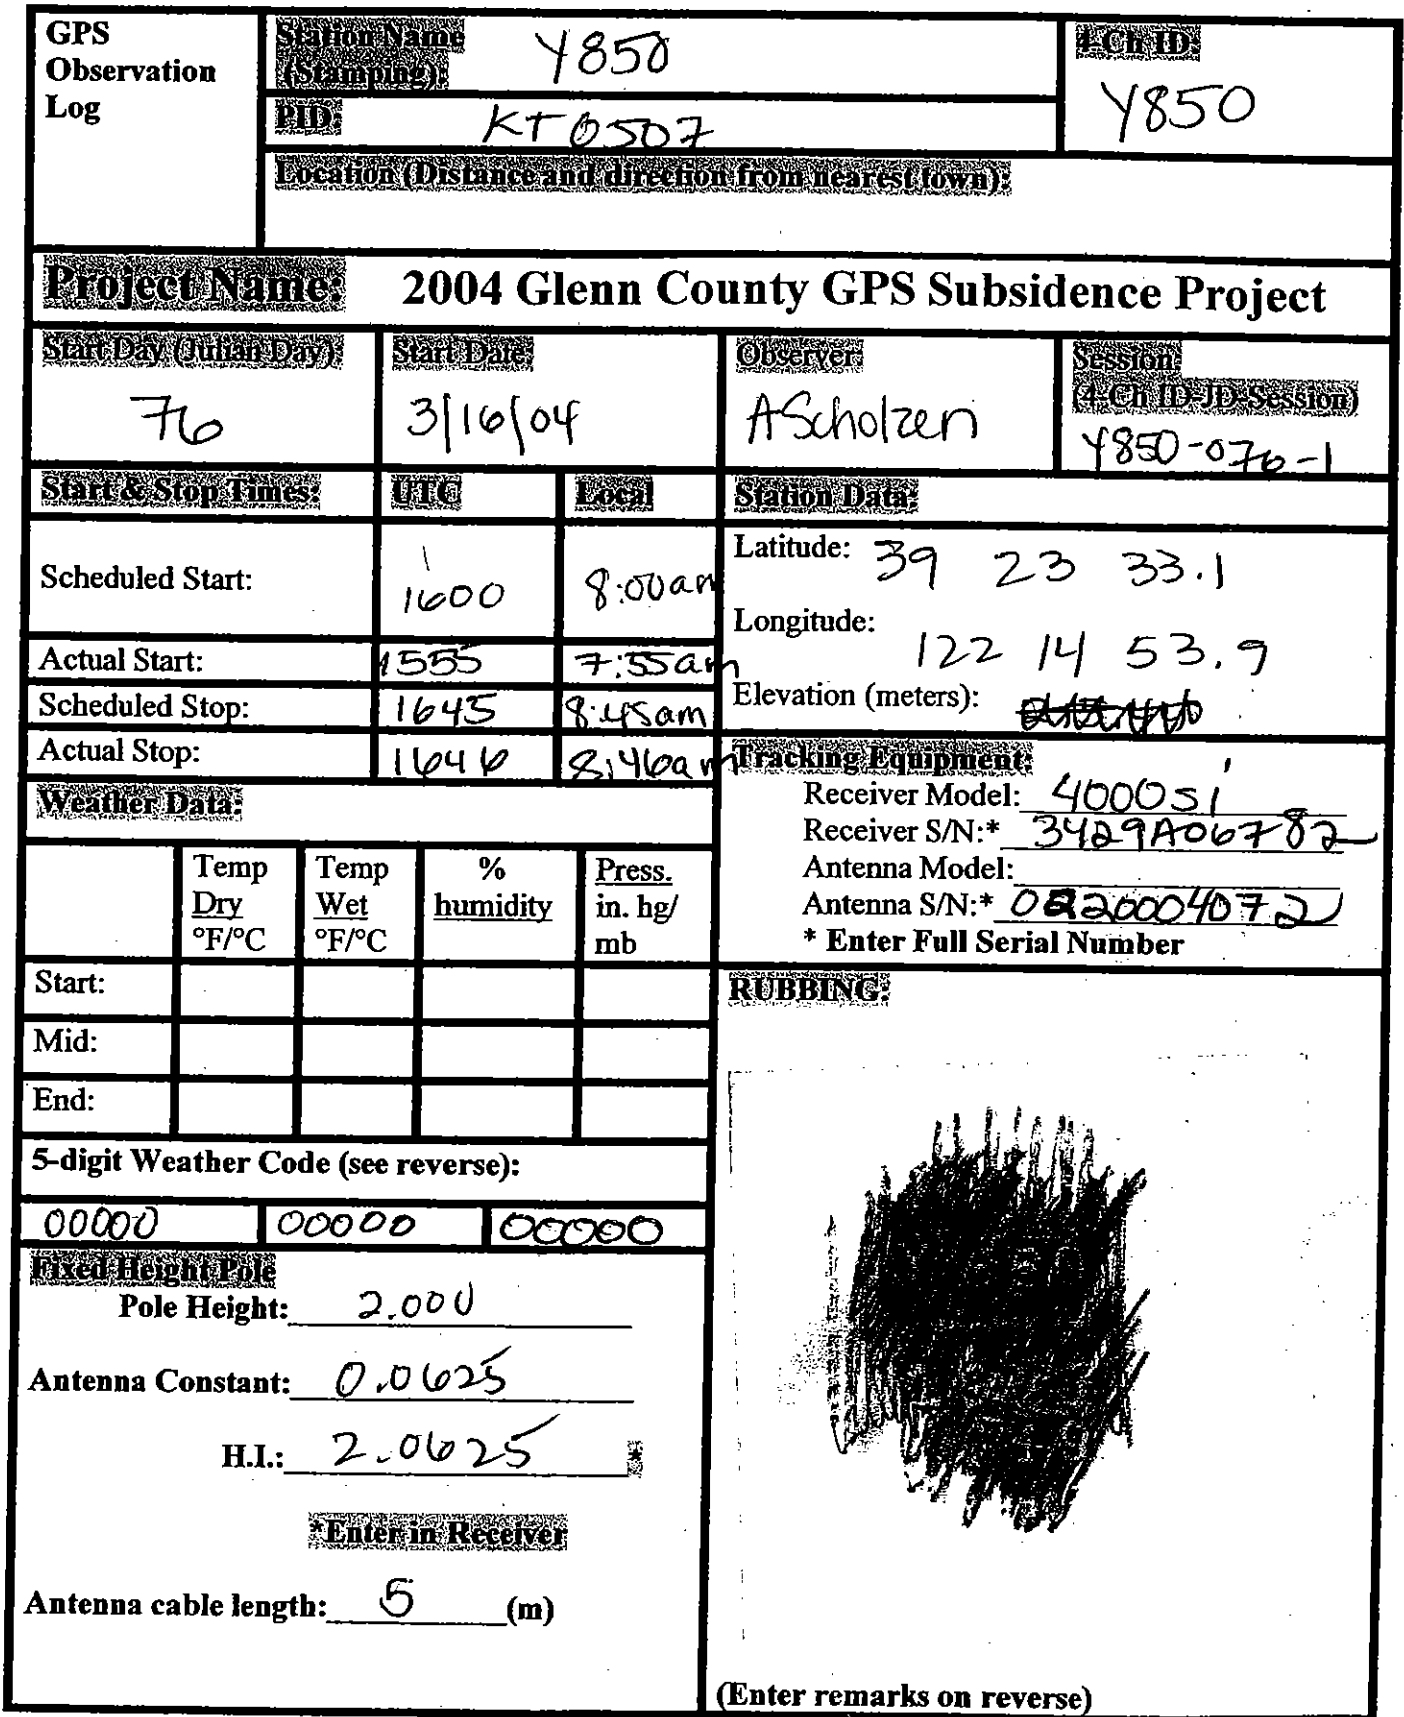 GPS
Observation
Log
Station Name
(Stamping):
Y850
4-Ch ID:
Y850
PID:
KT0507
Location (Distance and direction from nearest town):
Project Name: 2004 Glenn County GPS Subsidence Project
Start Day (Julian Day):
76
Start Date:
3/16/04
Observer:
AScholzen
Session:
(4-Ch ID-JD-Session)
Y850-076-1
Start & Stop Times: UTC Local
Scheduled Start: 1600 8:00am
Actual Start: 1555 7:55am
Scheduled Stop: 1645 8:45am
Actual Stop: 1646 8:46am
Station Data:
Latitude: 39 23 33.1
Longitude:
122 14 53.9
Elevation (meters):
Tracking Equipment:
Receiver Model: 4000si
Receiver S/N:* 3429A06782
Antenna Model:
Antenna S/N:* 0220004072
* Enter Full Serial Number
Weather Data:
Temp
Dry
°F/°C
Temp
Wet
°F/°C
%
humidity
Press.
in. hg/
mb
Start:
Mid:
End:
5-digit Weather Code (see reverse):
00000 00000 00000
Fixed Height Pole
Pole Height: 2.000
Antenna Constant: 0.0625
H.I.: 2.0625 *
*Enter in Receiver
Antenna cable length: 5 (m)
RUBBING:
(Enter remarks on reverse)